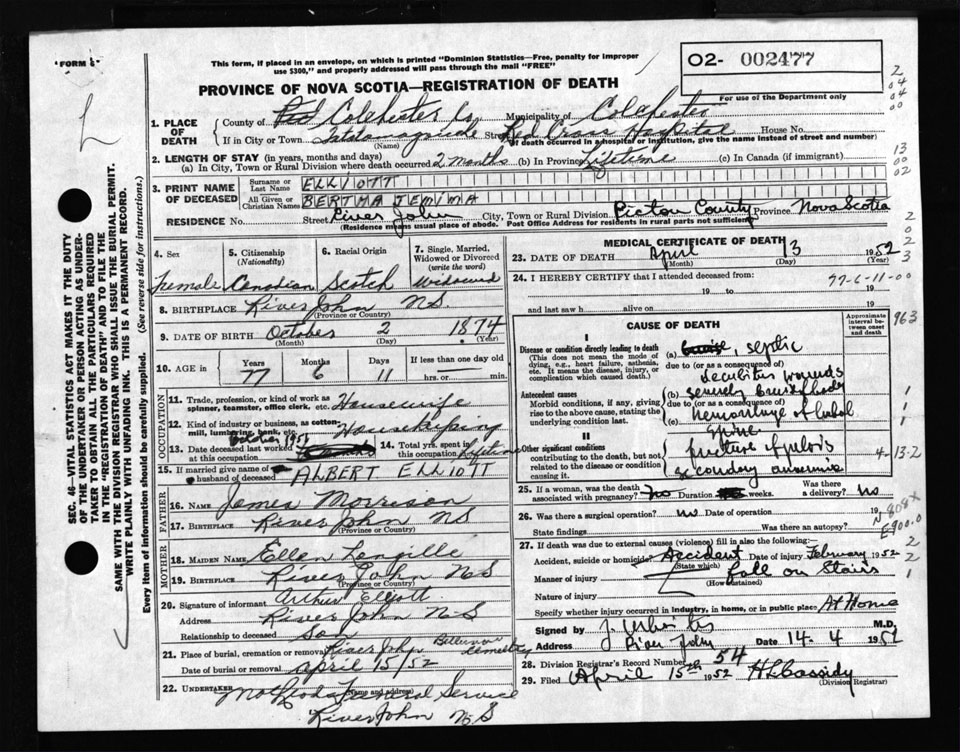 "FORM 6"
This form, if placed in an envelope, on which is printed "Dominion Statistics—Free, penalty for improper
use $300," and properly addressed will pass through the mail "FREE"
02- 002477
For use of the Department only
PROVINCE OF NOVA SCOTIA—REGISTRATION OF DEATH
SEC. 46—VITAL STATISTICS ACT MAKES IT THE DUTY
OF THE UNDERTAKER OR PERSON ACTING AS UNDER-
TAKER TO OBTAIN ALL THE PARTICULARS REQUIRED
IN THE "REGISTRATION OF DEATH" AND TO FILE THE
SAME WITH THE DIVISION REGISTRAR WHO SHALL ISSUE THE BURIAL PERMIT.
WRITE PLAINLY WITH UNFADING INK. THIS IS A PERMANENT RECORD.
Every item of information should be carefully supplied. (See reverse side for instructions.)
1. PLACE OF DEATH
County of Colchester Co Municipality of Colchester
If in City or Town Tatamagouche Street Red Cross Hospital House No.
(Name) (If death occurred in a hospital or institution, give the name instead of street and number)
2. LENGTH OF STAY (in years, months and days)
(a) In City, Town or Rural Division where death occurred 2 months (b) In Province Lifetime (c) In Canada (if immigrant)
3. PRINT NAME OF DECEASED
Surname or Last Name ELLIOTT
All Given or Christian Names BERTHA JEMIMA
RESIDENCE No. Street River John City, Town or Rural Division Pictou County Province Nova Scotia
(Residence means usual place of abode. Post Office Address for residents in rural parts not sufficient)
4. Sex Female
5. Citizenship (Nationality) Canadian
6. Racial Origin Scotch
7. Single, Married, Widowed or Divorced (write the word) Widowed
8. BIRTHPLACE River John N.S.
(Province or Country)
9. DATE OF BIRTH October 2 1874
(Month) (Day) (Year)
10. AGE in Years Months Days If less than one day old
77 6 11 hrs. or min.
OCCUPATION
11. Trade, profession, or kind of work as spinner, teamster, office clerk, etc. Housewife
12. Kind of industry or business, as cotton mill, lumbering, bank, etc. Housekeeping
13. Date deceased last worked at this occupation October 1951
14. Total yrs. spent in this occupation Lifetime
15. If married give name of husband of deceased ALBERT ELLIOTT
FATHER
16. NAME James Morrison
17. BIRTHPLACE River John N S
(Province or Country)
MOTHER
18. MAIDEN NAME Ellen Langille
19. BIRTHPLACE River John N S
(Province or Country)
20. Signature of informant Arthur Elliott
Address River John N-S
Relationship to deceased Son
21. Place of burial, cremation or removal River John Cemetery
Date of burial or removal April 15/52
22. UNDERTAKER Funeral Service
(Name and address)
River John N S
MEDICAL CERTIFICATE OF DEATH
23. DATE OF DEATH April 13 1952
(Month) (Day)
24. I HEREBY CERTIFY that I attended deceased from:
19 to 19
and last saw h alive on 19
77-6-11-00
CAUSE OF DEATH
Approximate interval between onset and death
I
Disease or condition directly leading to death
(This does not mean the mode of dying, e.g., heart failure, asthenia, etc. It means the disease, injury, or complication which caused death.)
(a) septic
due to (or as a consequence of)
decubitus wounds
Antecedent causes
Morbid conditions, if any, giving rise to the above cause, stating the underlying condition last.
(b)
due to (or as a consequence of)
(c) hemorrhage of
spine
II
Other significant conditions
contributing to the death, but not related to the disease or condition causing it.
fracture of pelvis
secondary
4-13-2
963
25. If a woman, was the death associated with pregnancy? No Duration weeks. Was there a delivery? No
26. Was there a surgical operation? no Date of operation 19
State findings Was there an autopsy?
N-808X
E900.0
27. If death was due to external causes (violence) fill in also the following:—
Accident, suicide or homicide? Accident Date of injury February 1952
(State which)
Manner of injury fall on Stairs
(How sustained)
Nature of injury
Specify whether injury occurred in industry, in home, or in public place At Home
Signed by M.D.
Address River John Date 14-4 1952
28. Division Registrar's Record Number 54
29. Filed April 15th 1952 H L Cassidy
(Division Registrar)